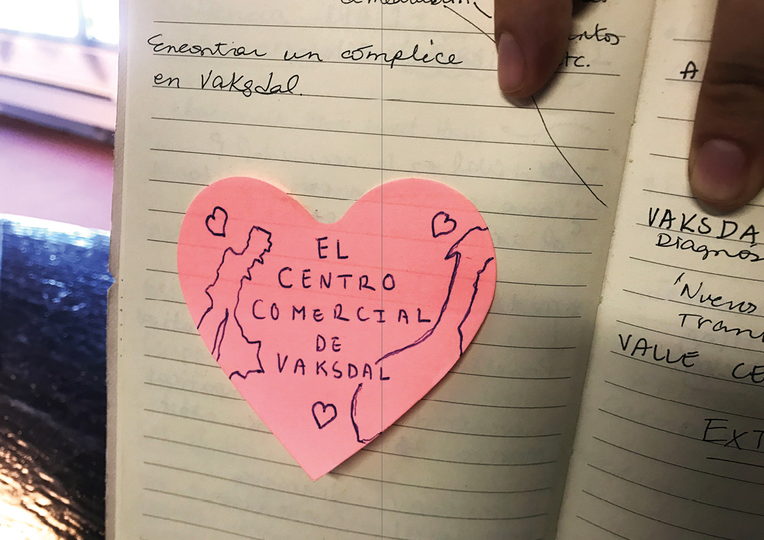 Encontrar un cómplice
en Vaksdal.
EL
CENTRO
COMERCIAL
DE
VAKSDAL
VAKSDA
Diagnos
'Nuevo
Tran
VALLE CE
EXT